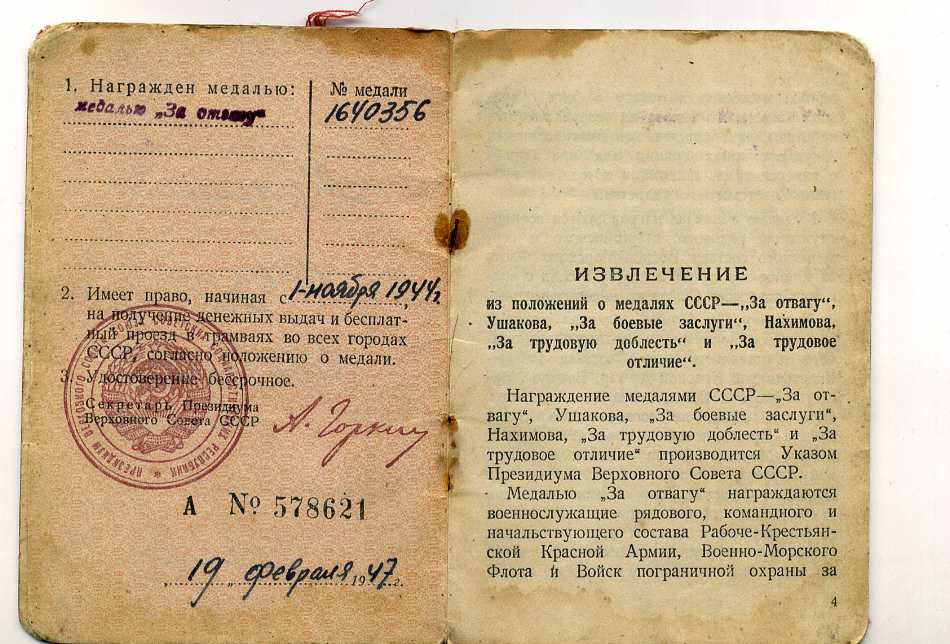 1. Награжден медалью:
№ медали
медалью „За отвагу“
1640356
2. Имеет право, начиная с 1-ноября 1944г.
на получение денежных выдач и бесплат-
ный проезд в трамваях во всех городах
СССР, согласно положению о медали.
3. Удостоверение бессрочное.
Секретарь Президиума
Верховного Совета СССР
А. Горкин
А № 578621
„19„ февраля 1947г.
ИЗВЛЕЧЕНИЕ
из положений о медалях СССР—„За отвагу“,
Ушакова, „За боевые заслуги“, Нахимова,
„За трудовую доблесть“ и „За трудовое
отличие“.
Награждение медалями СССР—„За от-
вагу“, Ушакова, „За боевые заслуги“,
Нахимова, „За трудовую доблесть“ и „За
трудовое отличие“ производится Указом
Президиума Верховного Совета СССР.
Медалью „За отвагу“ награждаются
военнослужащие рядового, командного и
начальствующего состава Рабоче-Крестьян-
ской Красной Армии, Военно-Морского
Флота и Войск пограничной охраны за
4